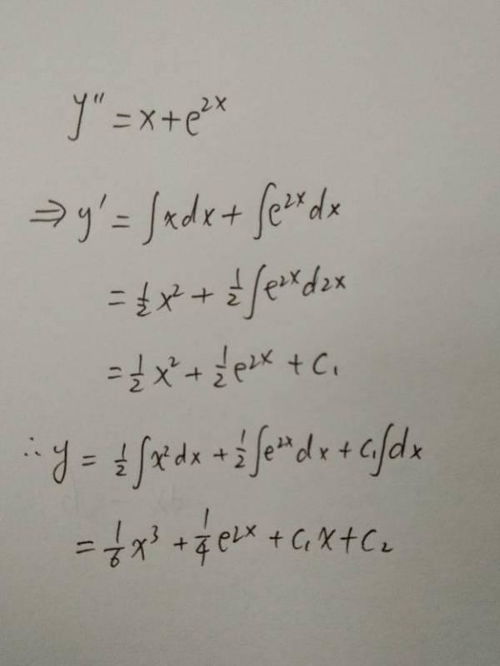 y'' = x + e^{2x}
⇒ y' = ∫xdx + ∫e^{2x}dx
= \frac{1}{2}x^2 + \frac{1}{2}∫e^{2x}d2x
= \frac{1}{2}x^2 + \frac{1}{2}e^{2x} + C_1
∴ y = \frac{1}{2}∫x^2dx + \frac{1}{2}∫e^{2x}dx + C_1∫dx
= \frac{1}{6}x^3 + \frac{1}{4}e^{2x} + C_1x + C_2